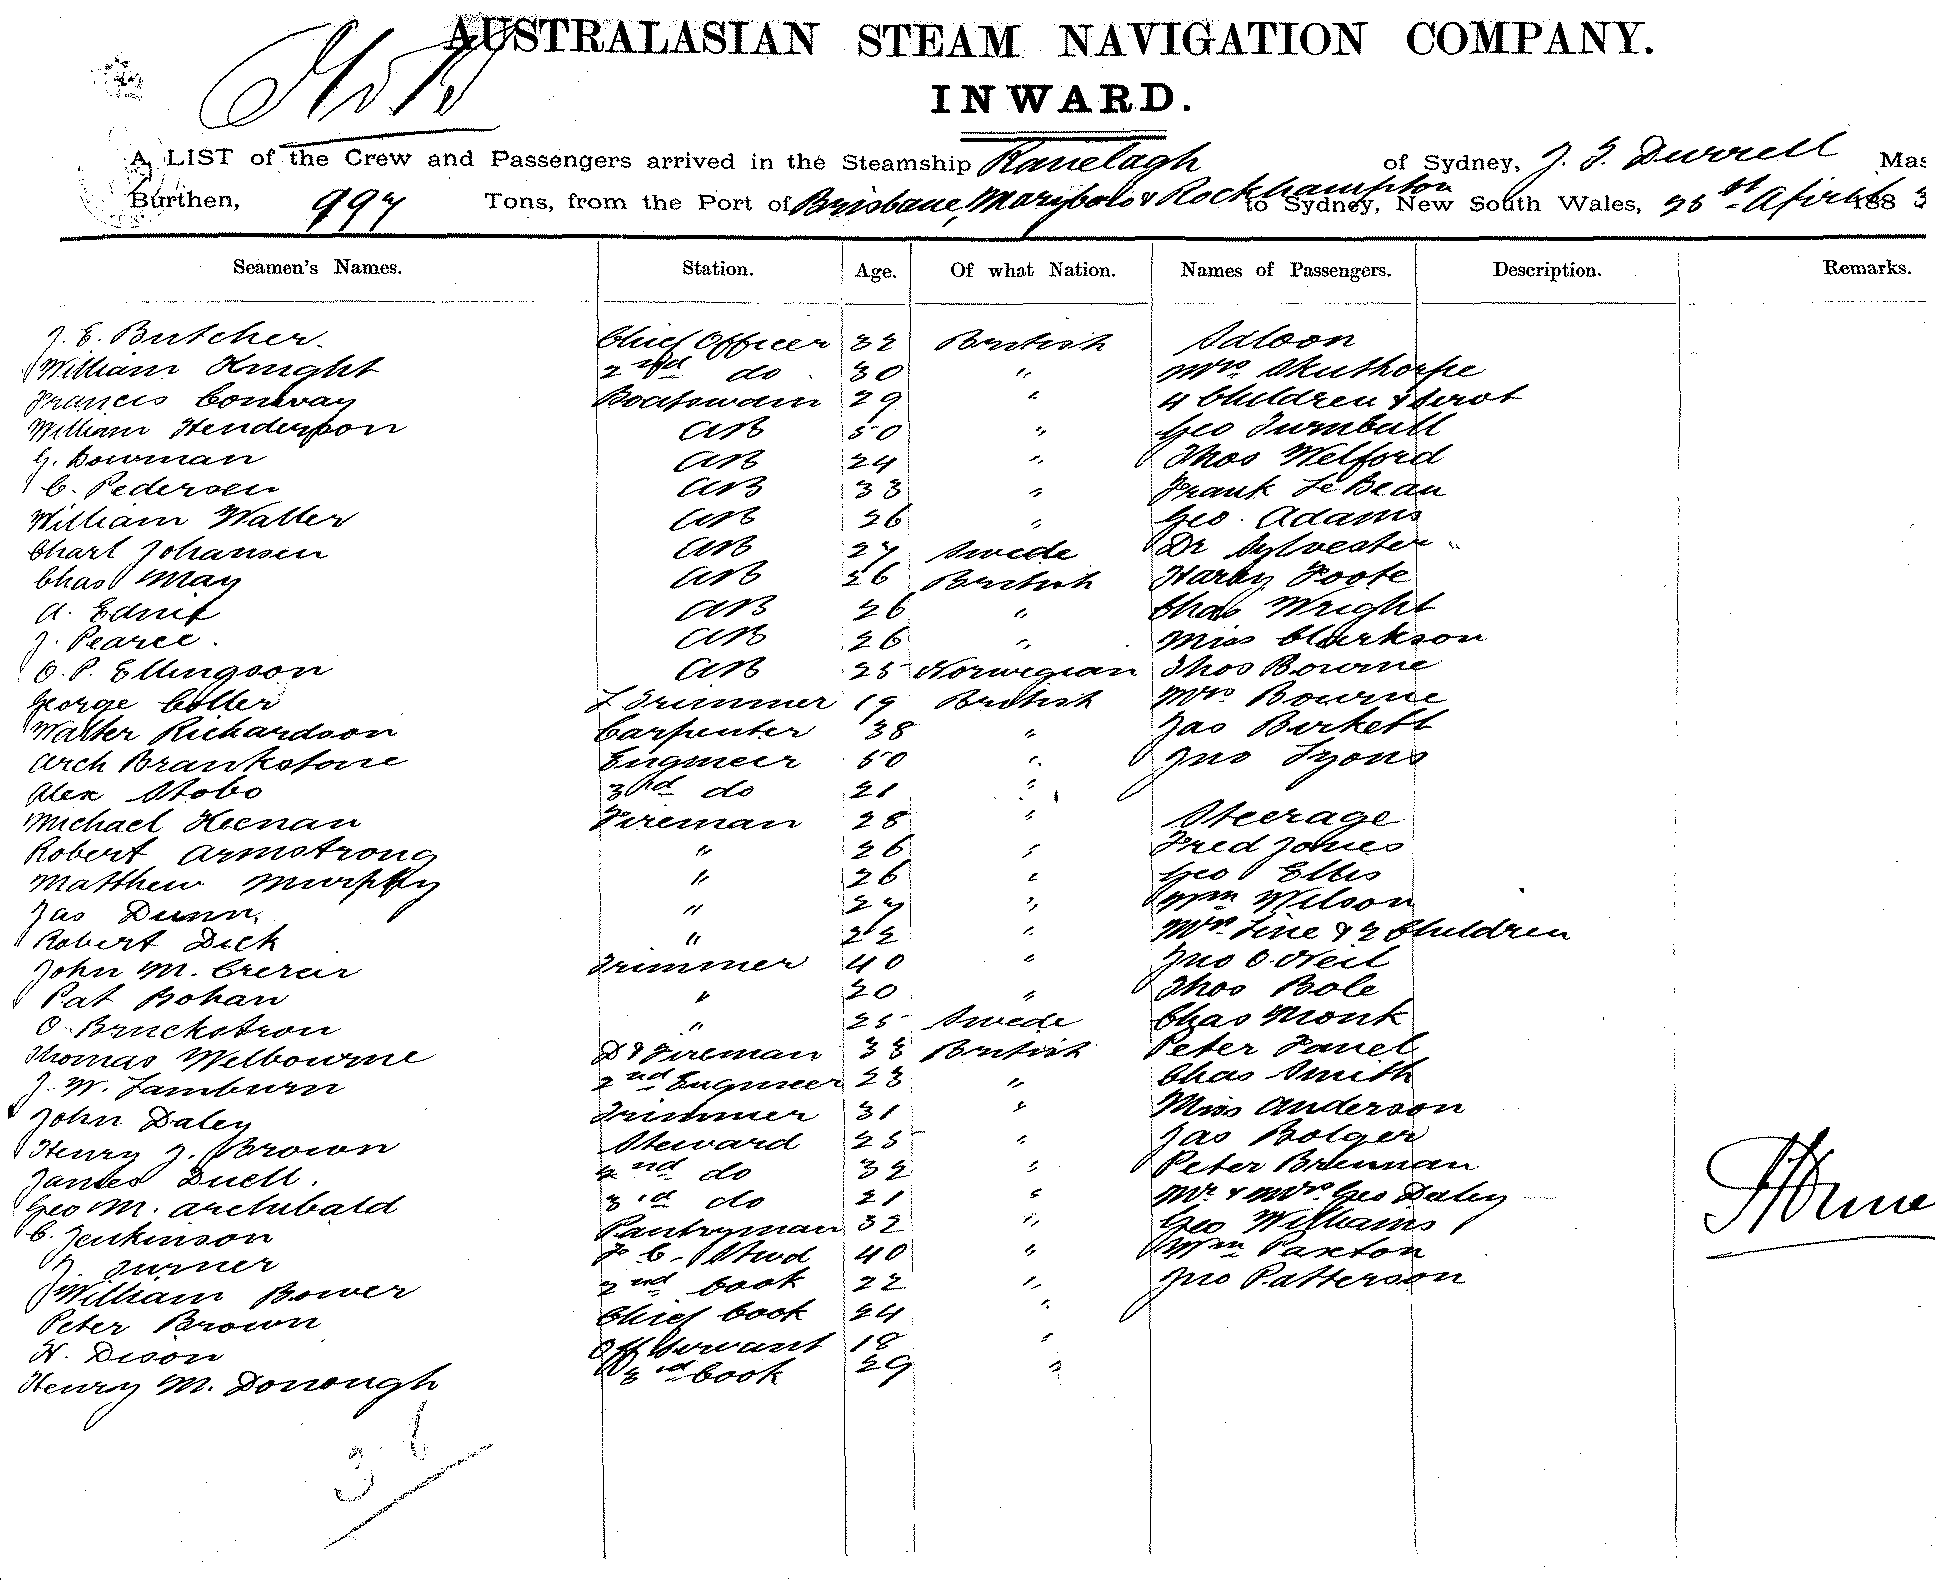 AUSTRALASIAN STEAM NAVIGATION COMPANY.
INWARD.
A LIST of the Crew and Passengers arrived in the Steamship Ranelagh of Sydney, J. S. Durrell Mas
Burthen, 997 Tons, from the Port of Brisbane, Maryboro & Rockhampton to Sydney, New South Wales, 25st April 1883
Seamen's Names. Station. Age. Of what Nation. Names of Passengers. Description. Remarks.
J. E. Butcher Chief Officer 32 British Saloon
William Knight 2nd do 30 " Mrs Skuthorpe
Francis Conway Boatswain 29 " 4 Children & Servt
William Henderson AB 50 " Geo Turnbull
G. Bowman AB 24 " Thos Welford
C. Pedersen AB 33 " Frank Le Beau
William Waller AB 26 " Geo. Adams
Charl Johansen AB 27 Swede Dr Sylvester "
Chas May AB 26 British Harry Foote
A. AB 26 " Chas Wright
J. Pearce. AB 26 " Miss Clarkson
O. P. Ellingson AB 25 Norwegian Thos Bourne
George Coller L Trimmer 19 British Mrs Bourne
Walter Richardson Carpenter 38 " Jas Birkett
Arch Brankstone Engineer 50 " Jno Lyons
Alex Stobo 3rd do 21 "
Michael Heenan Fireman 28 " Steerage
Robert Armstrong " 26 " Fred Jones
Matthew Murphy " 26 " Geo Ellis
Jas Dunn " 27 " Wm Wilson
Robert Dick " 22 " Mrs Line & 2 Children
John M. Crerar Trimmer 40 " Jno O. Neil
Pat Bohan " 20 " Thos Bole
O. Bruckstron " 25 Swede Chas Monk
Thomas Welbourne D & Fireman 33 British Peter Fanel
J. W. Lamburn 2nd Engineer 23 " Chas Smith
John Daley Trimmer 31 " Miss Anderson
Henry J. Brown Steward 25 " Jas Bolger
James Duell. 2nd do 32 " Peter Brennan
Geo M. Archibald 3rd do 21 " Mr & Mrs Geo Daley
C. Jenkinson Pantryman 32 " Geo Williams
J. Turner F. C. Stwd 40 " Wm Paxton
William Bower 2nd Cook 22 " Jno Patterson
Peter Brown Chief Cook 24 "
H. Dison Off Servant 18 "
Henry M. Donough 3rd Cook 29 "
36